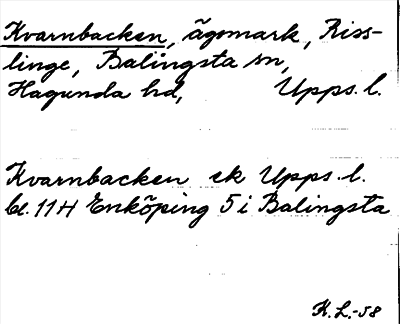 Kvarnbacken, ägomark, Riss-
linge, Balingsta sn,
Hagunda hd, Upps. l.
Kvarnbacken ek Upps. l.
bl. 11H Enköping 5 i Balingsta
K. L. -58